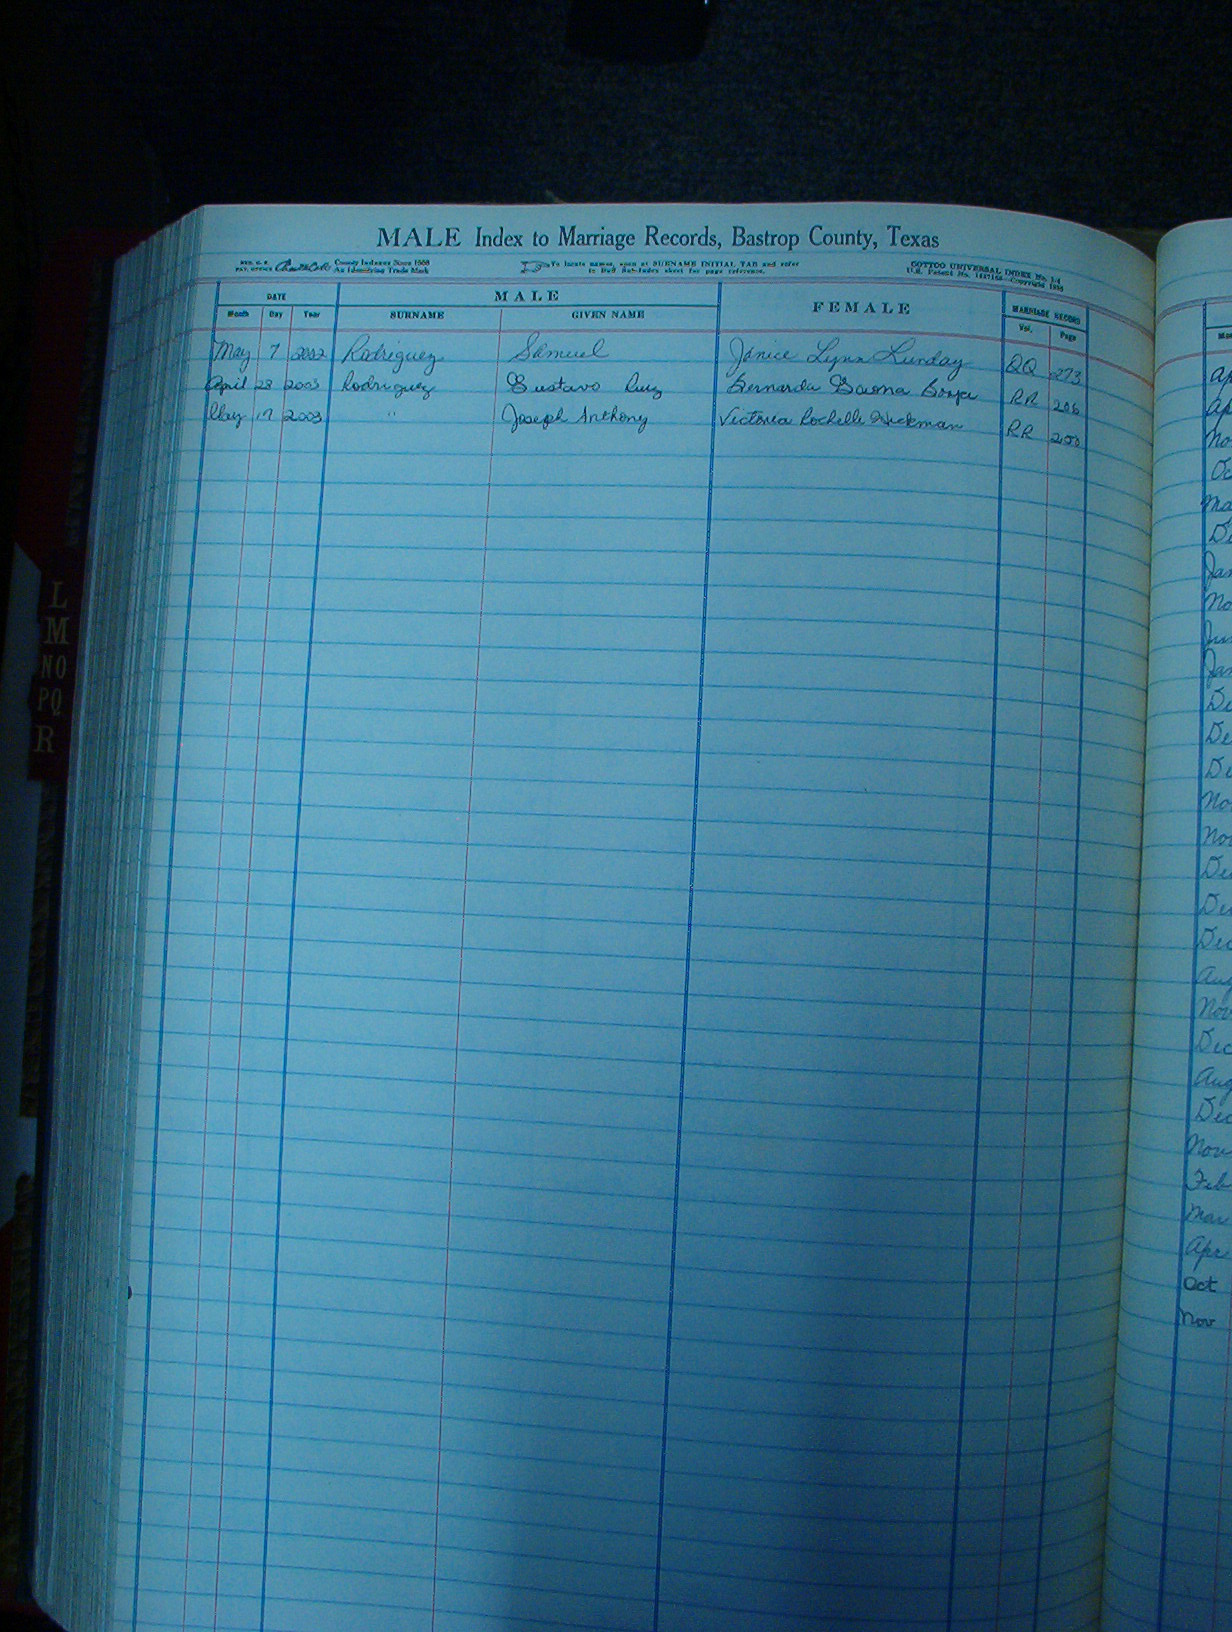 MALE Index to Marriage Records, Bastrop County, Texas
REG. U. S. PAT. OFFICE County Indexes Since 1888
An Identifying Trade Mark
To locate names, open at SURNAME INITIAL TAB and refer
to Sub-Index sheet for page reference.
COTTCO UNIVERSAL INDEX No.
U.S. Patent No. Copyright
DATE MALE FEMALE MARRIAGE RECORD
Month Day Year SURNAME GIVEN NAME Vol. Page
May 7 2002 Rodriguez Samuel Janice Lynn Lunday QQ 273
April 28 2003 Rodriguez Gustavo Ruiz Bernarda Gaona RR 206
May 17 2003 " Joseph Anthony Victoria Rochelle Hickman RR 250
L
M
NO
PQ
R
No
Oc
Ma
De
Jan
No
Jun
Jan
De
De
De
No
Nov
Dec
De
Dec
Aug
Nov
Dec
Aug
Dec
Nov
Feb
Mar
Apr
Oct
Nov